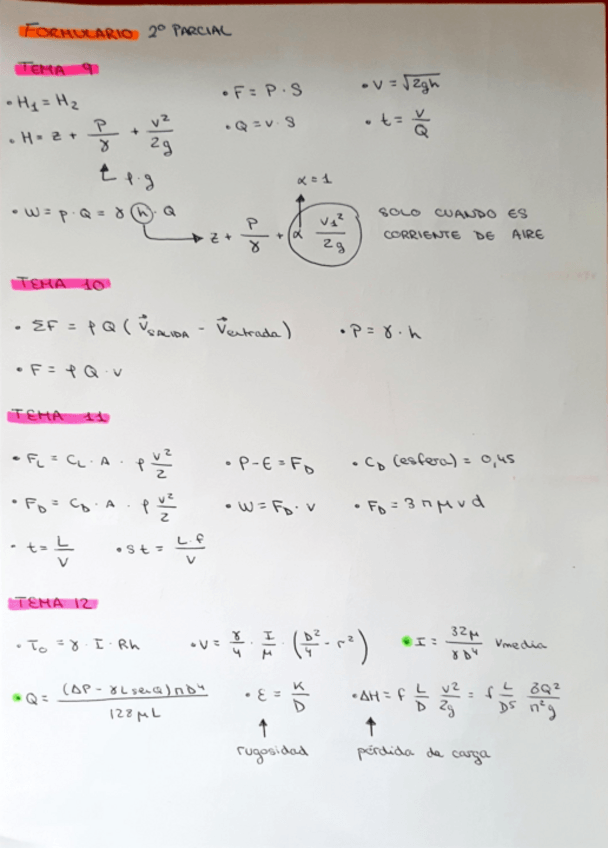 FORMULARIO 2º PARCIAL
TEMA 9
• H₁ = H₂
• F = P · S
• V = √2gh
• H = z + P/γ + v²/2g
• Q = v · S
• t = V/Q
ρ · g
α = 1
• W = p · Q = γ h · Q
z + P/γ + α V₁²/2g
SOLO CUANDO ES
CORRIENTE DE AIRE
TEMA 10
• ΣF = ρ Q ( V⃗SALIDA - V⃗entrada )
• P = γ · h
• F = ρ Q · v
TEMA 11
• F_L = C_L · A · ρ v²/2
• P - E = F_D
• C_D (esfera) = 0,45
• F_D = C_D · A · ρ v²/2
• W = F_D · v
• F_D = 3 π μ v d
• t = L/V
• St = L·f/V
TEMA 12
• τ₀ = γ · I · Rh
• V = γ/4 · I/μ · (D²/4 - r²)
• I = 32μ/γD⁴ Vmedia
• Q = (ΔP - γL senθ)πD⁴/128μL
• ε = K/D
• ΔH = f L/D v²/2g = f L/D⁵ 8Q²/π²g
rugosidad
pérdida de carga